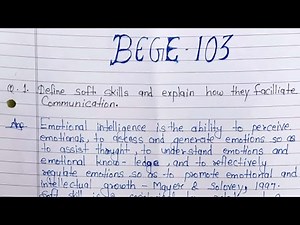 BEGE-103
Q.1. Define soft skills and explain how they facilliate
Communication.
Ans Emotional intelligence is the ability to perceive
emotionals, to assess and generate emotions so as
to assist thought, to understand emotions and
emotional know-ledge, and to reflectively
regulate emotions so as to promote emotional and
intellectual growth - Mayer & Solovey, 1997.